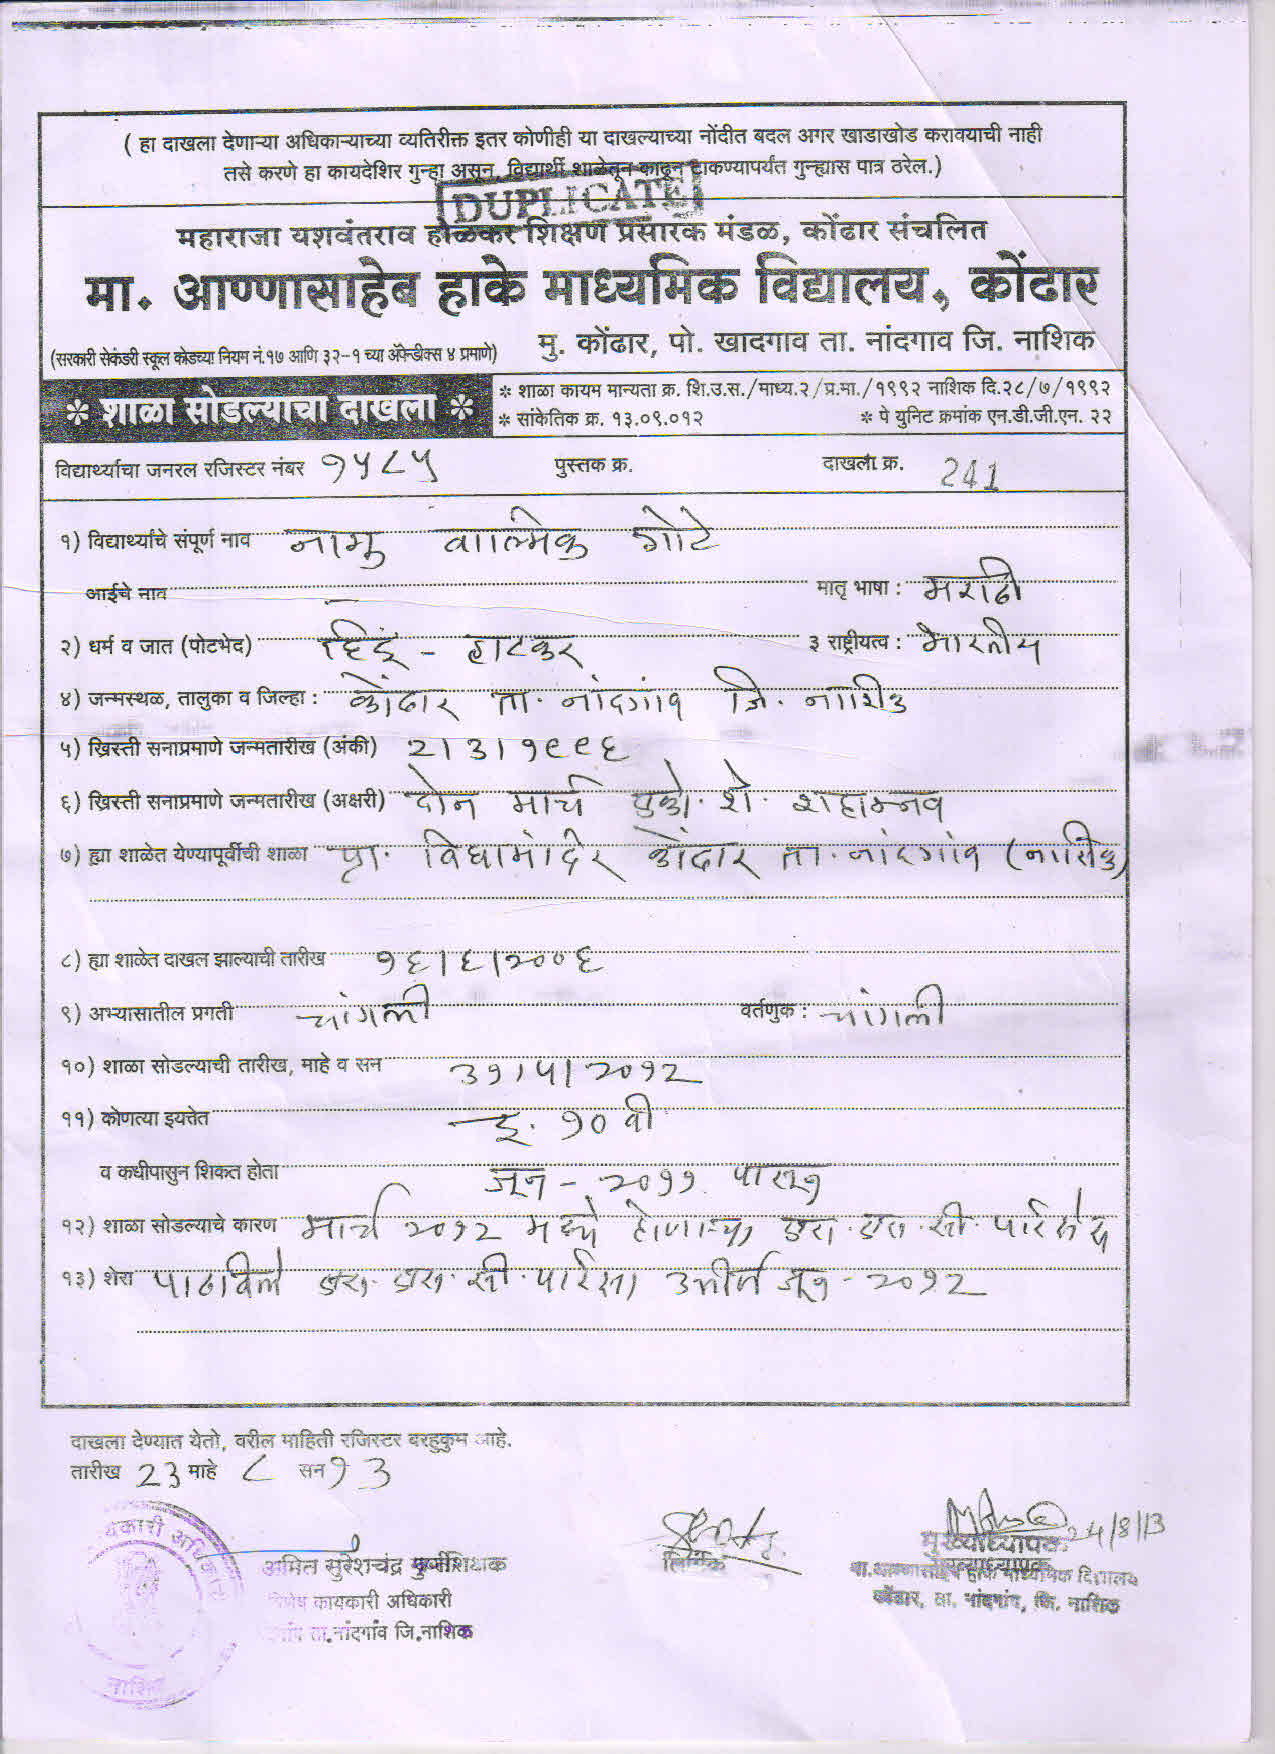 ( हा दाखला देणाऱ्या अधिकाऱ्याच्या व्यतिरीक्त इतर कोणीही या दाखल्याच्या नोंदीत बदल अगर खाडाखोड करावयाची नाही
तसे करणे हा कायदेशिर गुन्हा असून, विद्यार्थी शाळेतून काढून टाकण्यापर्यंत गुन्ह्यास पात्र ठरेल.)
DUPLICATE
महाराजा यशवंतराव होळकर शिक्षण प्रसारक मंडळ, कोंढार संचलित
मा. आण्णासाहेब हाके माध्यमिक विद्यालय, कोंढार
(सरकारी सेकंडरी स्कूल कोडच्या नियम नं.१७ आणि ३२-१ च्या ॲफेन्डीक्स ४ प्रमाणे) मु. कोंढार, पो. खादगाव ता. नांदगाव जि. नाशिक
* शाळा सोडल्याचा दाखला *
* शाळा कायम मान्यता क्र. शि.उ.स./माध्य.२/प्र.मा./१९९२ नाशिक दि.२८/७/१९९२
* सांकेतिक क्र. १३.०९.०१२ * पे युनिट क्रमांक एन.डी.जी.एन. २२
विद्यार्थ्याचा जनरल रजिस्टर नंबर १५८५ पुस्तक क्र. दाखला क्र. 241
१) विद्यार्थ्याचे संपूर्ण नाव नामु वाल्मिक गोटे
आईचे नाव मातृ भाषा : मराठी
२) धर्म व जात (पोटभेद) हिंदू - हाटकर ३ राष्ट्रीयत्व : भारतीय
४) जन्मस्थळ, तालुका व जिल्हा : कोंढार ता. नांदगांव जि. नाशिक
५) ख्रिस्ती सनाप्रमाणे जन्मतारीख (अंकी) २।३।१९९६
६) ख्रिस्ती सनाप्रमाणे जन्मतारीख (अक्षरी) दोन मार्च एको. शे. शहान्नव
७) ह्या शाळेत येण्यापूर्वीची शाळा प्रा. विद्यामंदिर कोंढार ता. नांदगांव (नाशिक)
८) ह्या शाळेत दाखल झाल्याची तारीख १६।६।२००६
९) अभ्यासातील प्रगती चांगली वर्तणुक : चांगली
१०) शाळा सोडल्याची तारीख, माहे व सन ३१।५।२०१२
११) कोणत्या इयत्तेत इ. १० वी
व कधीपासुन शिकत होता जून - २०११ पासून
१२) शाळा सोडल्याचे कारण मार्च २०१२ मध्ये होणाऱ्या एस. एस. सी. परिक्षेस
१३) शेरा पाठविले एस. एस. सी. परिक्षा उत्तीर्ण जून - २०१२
दाखला देण्यात येतो, वरील माहिती रजिस्टर बरहुकुम आहे.
तारीख 23 माहे ८ सन १३
कार्यकारी अधिकारी
नाशिक
अमित सुरेशचंद्र
विशेष कायकारी अधिकारी
ता.नांदगांव जि.नाशिक
लिपीक
24/8/13
मुख्याध्यापक
मुख्याध्यापक
मा.आण्णासाहेब हाके माध्यमिक विद्यालय
कोंढार, ता. नांदगांव, जि. नाशिक